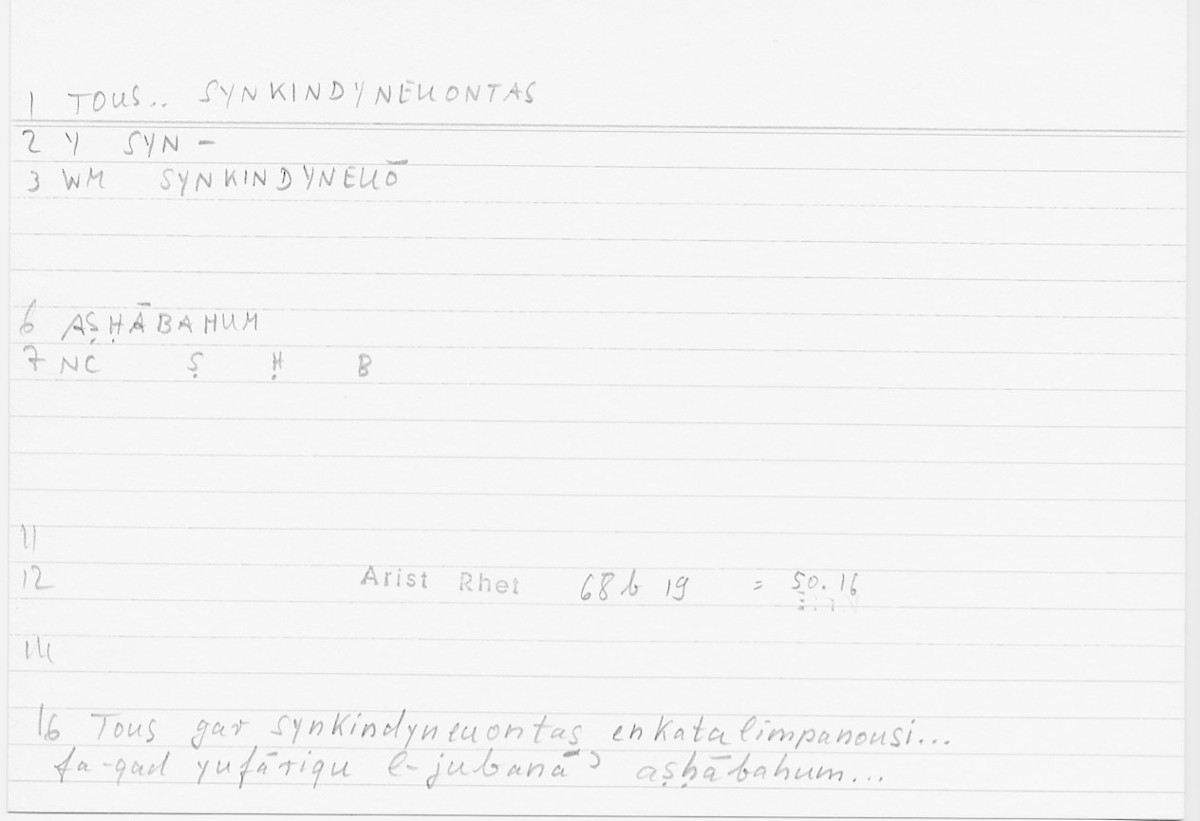 1 TOUS.. SYNKINDYNEUONTAS
2 Y SYN -
3 WM SYNKINDYNEUŌ
6 AṢḤĀBAHUM
7 NC Ṣ Ḥ B
11
12 Arist Rhet 68 b 19 = 50.16
14
16 Tous gar synkindyneuontas enkatalimpanousi...
fa-qad yufāriqu l-jubanāʾ aṣḥābahum...